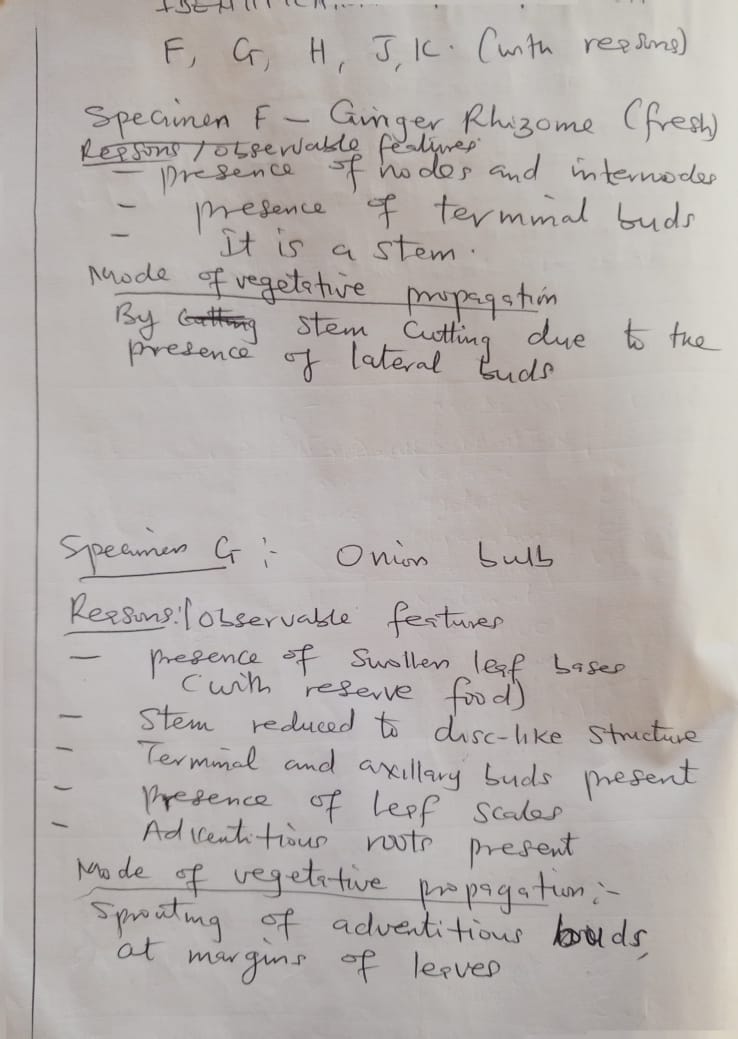 F, G, H, J, K. (with reasons)
Specimen F - Ginger Rhizome (fresh)
Reasons / observable features
- presence of nodes and internodes
- presence of terminal buds
- It is a stem.
Mode of vegetative propagation
By Cutting stem Cutting due to the
presence of lateral buds
Specimen G :- Onion bulb
Reasons:/observable features
- presence of Swollen leaf bases
(with reserve food)
- Stem reduced to disc-like structure
- Terminal and axillary buds present
- Presence of leaf scales
- Adventitious roots present
Mode of vegetative propagation:-
Sprouting of adventitious buds,
at margins of leaves